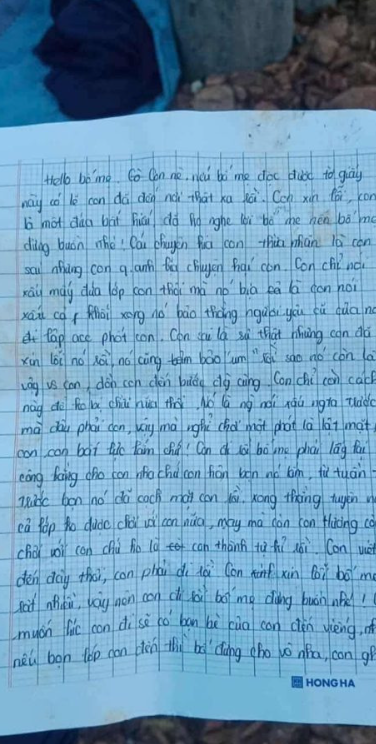 Hello bố mẹ. Gô Con nè, nếu bố mẹ đọc được tờ giấy
này có lẽ con đã đến nơi thật xa rồi. Con xin lỗi, con
là một đứa bất hiếu đã ko nghe lời bố mẹ nên bố mẹ
đừng buồn nhé! Cái chuyện kia con thừa nhận là con
sai nhưng con q.anh bịa chuyện hại con. Con chỉ nói
xấu mấy đứa lớp con thôi mà nó bịa ra là con nói
xấu cả khối xong nó bảo thằng người yêu cũ của nó
lập acc phốt con. Con sai là sự thật nhưng con đã
xin lỗi nó rồi, nó cũng bảo "um" rồi sao nó còn
vậy vs con, dồn con đến bước đg cùng. Con chỉ còn cách
này để ko bị chửi nữa thôi. Nó là ng nói xấu ngta trước
mà đâu phải con, vậy mà nghỉ chơi một phát là lật mặt
con, con bực tức lắm chứ! Con đi rồi bố mẹ phải lấy lại
công bằng cho con nhá chứ con hận bọn nó lắm, từ tuần
trước bọn nó đã cạch mặt con rồi, xong thằng tuyên
cả lớp ko được chơi với con nữa, may mà còn con thương
chơi với con chứ ko là con thành tự kỉ rồi. Con viết
đến đây thôi, con phải đi rồi. Con xin lỗi bố mẹ
rất nhiều, vậy nên con đi rồi bố mẹ đừng buồn nhé!
muốn lúc con đi sẽ có bạn bè của con đến viếng,
nếu bọn lớp con đến thì bố đừng cho vô nha, con
HONG HA